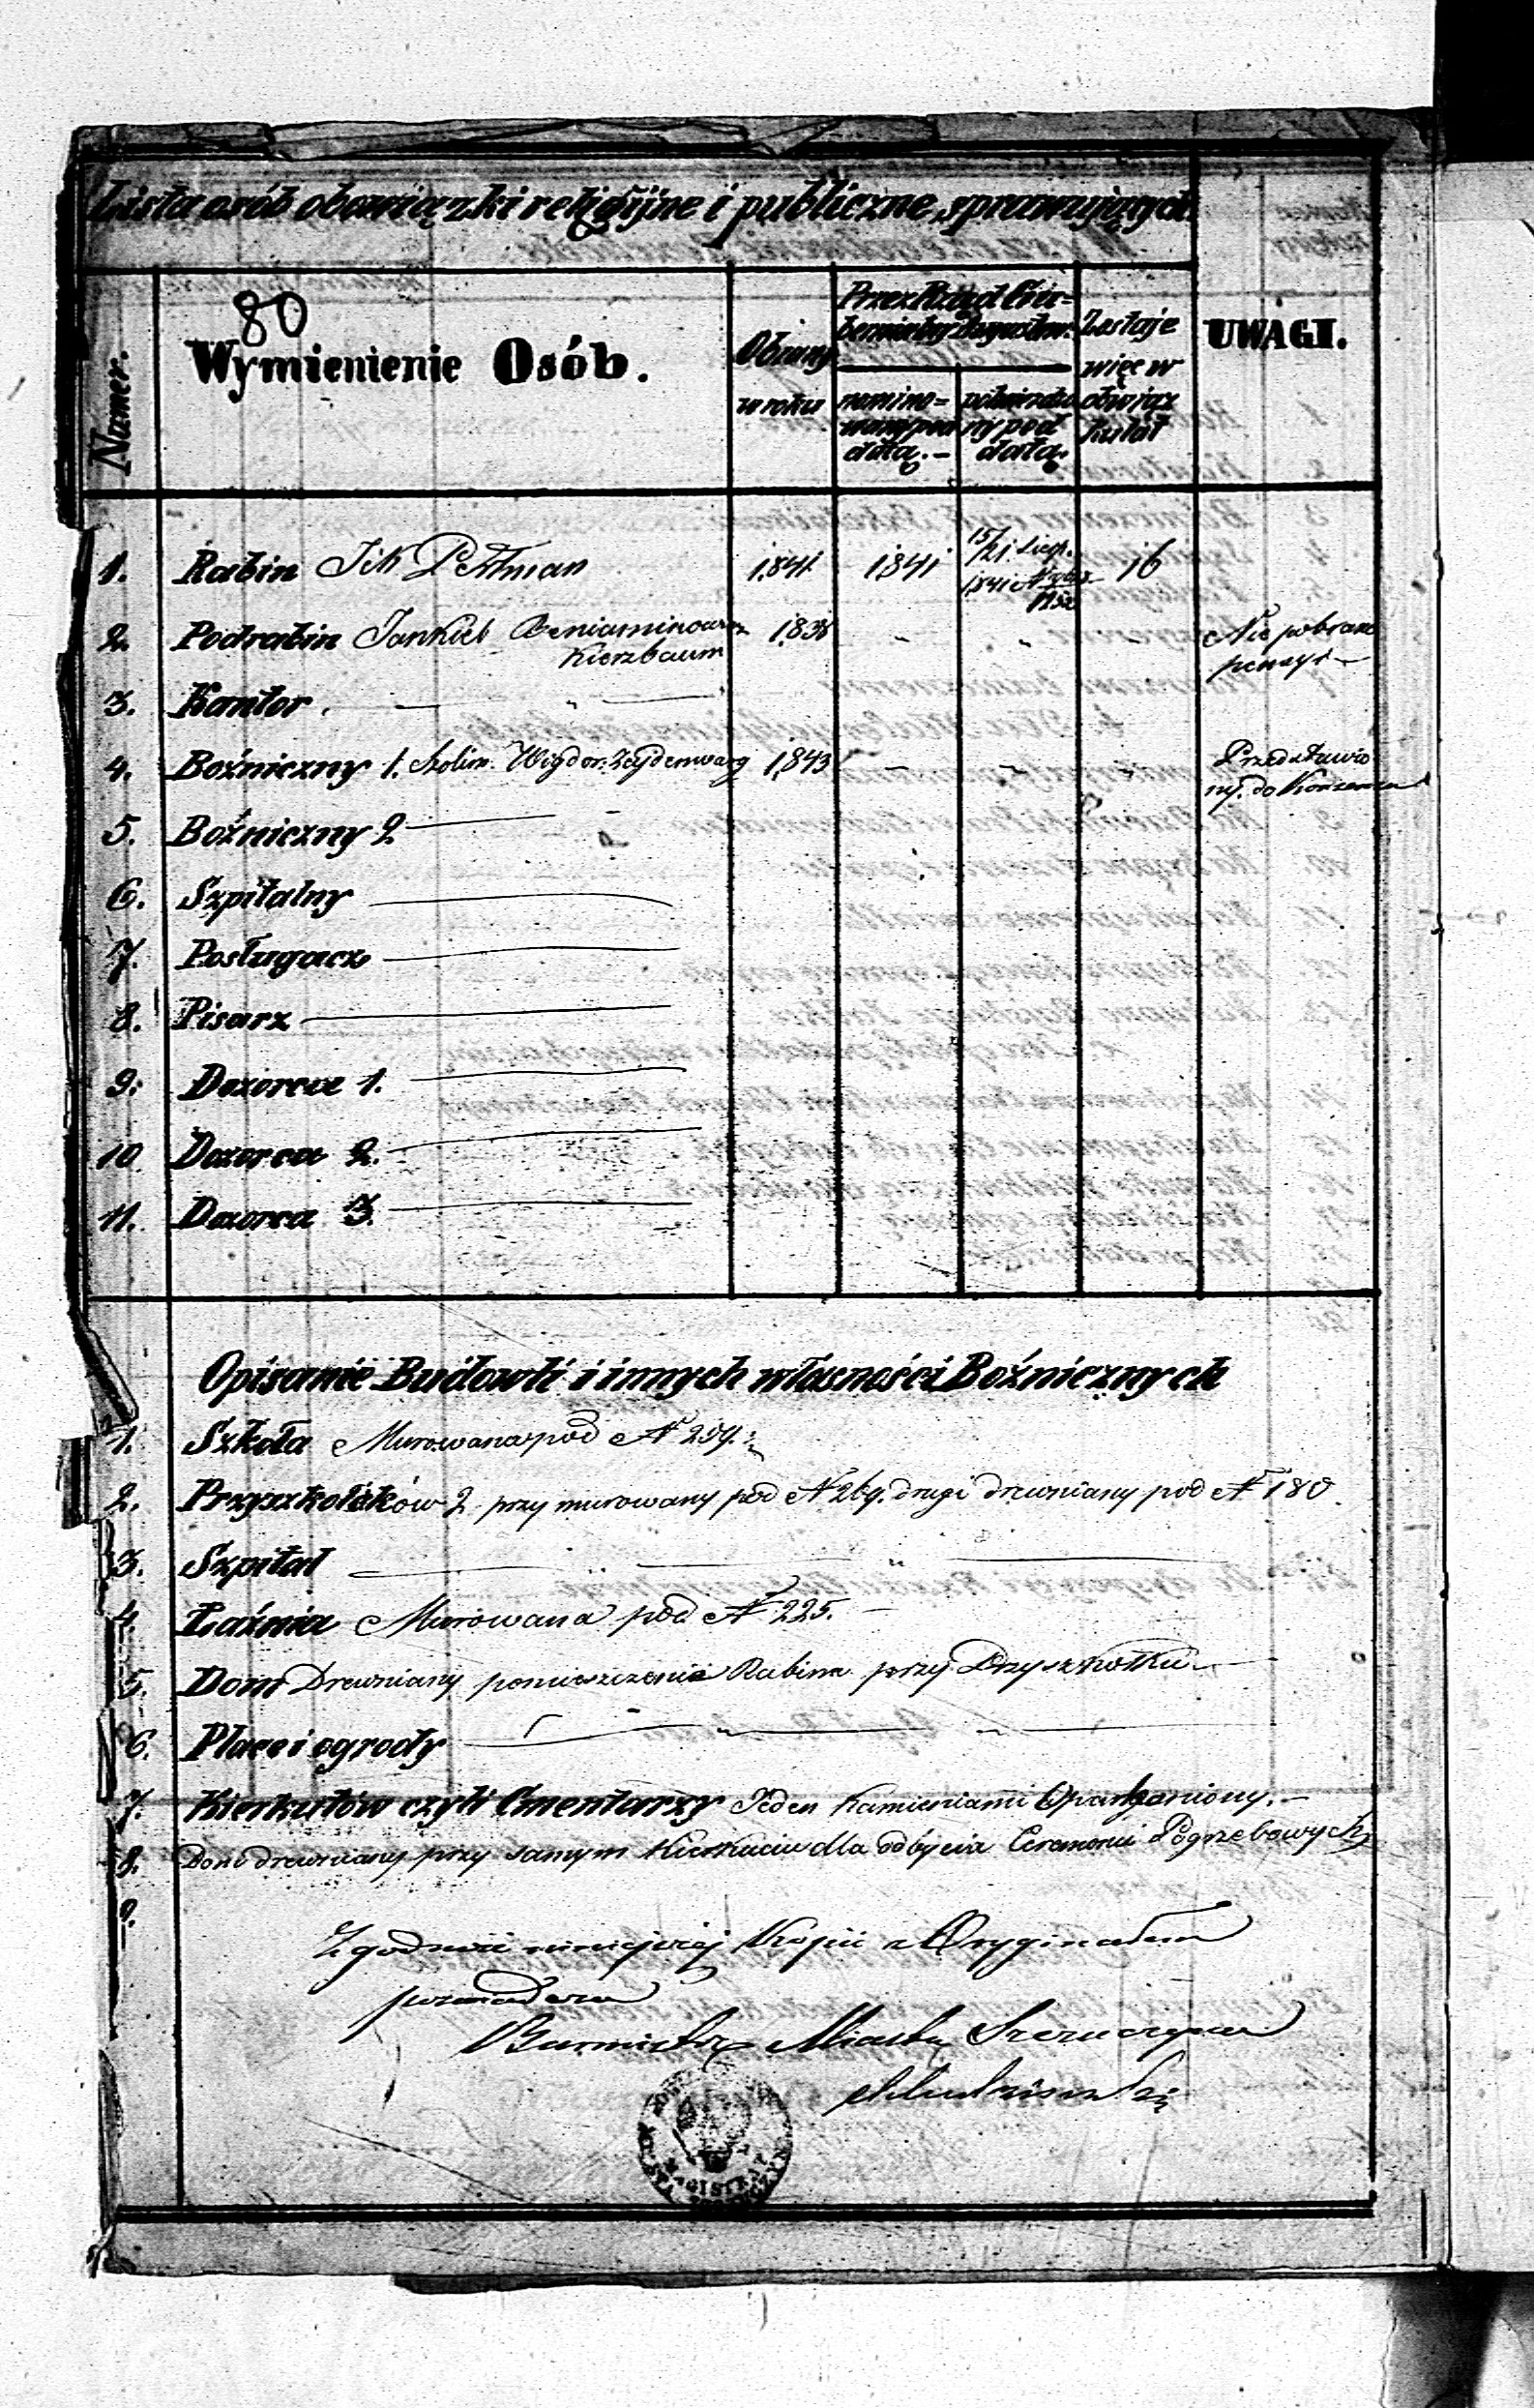 Lista osób obowiązki religijne i publiczne sprawujących
80
Numer.
Wymienienie Osób.
Obrany w roku
Przez Rząd Gubernialny
nomino=wany pod datą.
potwierdzony pod datą.
Zostaje więc w obowiązku lat
UWAGI.
1. Rabin Icik Peltman 1841 1841 15/21 Sierp. 1841 16
2. Podrabin Jankiel Beniaminowicz 1838 " " " Nie pobrane
Kierzbaum pensyi
3. Kantor
4. Boźniczny 1. Szolim Wigdor Zajdenwarg 1843 Przedstawio
ny do
5. Boźniczny 2
6. Szpitalny
7. Posługacz
8. Pisarz
9. Dozorca 1.
10 Dozorca 2.
11. Dozorca 3.
Opisanie Budowli i innych własności Boźnicznych
1. Szkoła Murowana pod N 259.
2. Przyszkolików 2 przy murowany pod N 269. drugi drewniany pod N 180.
3. Szpital
4. Łaźnia Murowana pod N 225.
5. Dom Drewniany pomieszczenia Rabina przy Przyszkolku
6. Place i ogrody
7. Kierkutów czyli Cmentarzy Jeden Kamieniami Oparkaniony.
8. Dom drewniany przy samym Kierkucie dla odbycia Ceremonii Pogrzebowych
9.
Zgodność niniejszej Kopii z Oryginałem
poswiadcza
Burmistrz Miasta Szczuczyna